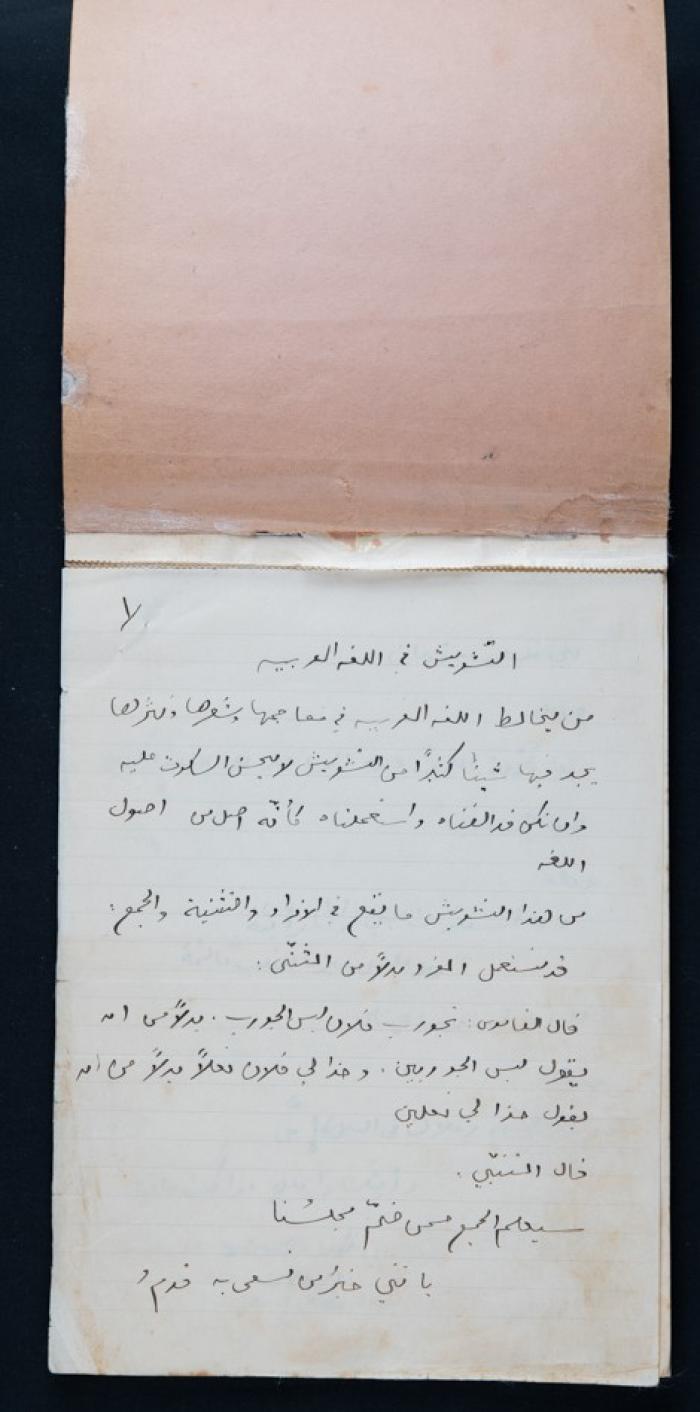 ٧
التّشويش في اللغه العربيه
من يخالط اللغه العربيه في معاجمها وشعرها ونثرها
يجد فيها شيئاً كثيرًا من التشويش لا يحسن السكوت عليه
وان نكن قد الفناه واستعملناه كأنّه اصل من اصول
اللغه
من هذا التشويش ما يقع في الافراد والتثنية والجمع :
قد نستعمل المفرد بدلاً من المثنّى :
قال القاموس : تجورب فلان لبس الجورب . بدلاً من ان
يقول لبس الجوربين . وحذا لي فلان نعلاً بدلاً من ان
يقول حذا لي نعلين
قال المتنبّي .
سيعلم الجمع ممن ضمّ مجلسُنا
بانّني خيرُ من تسعى به قدمُ